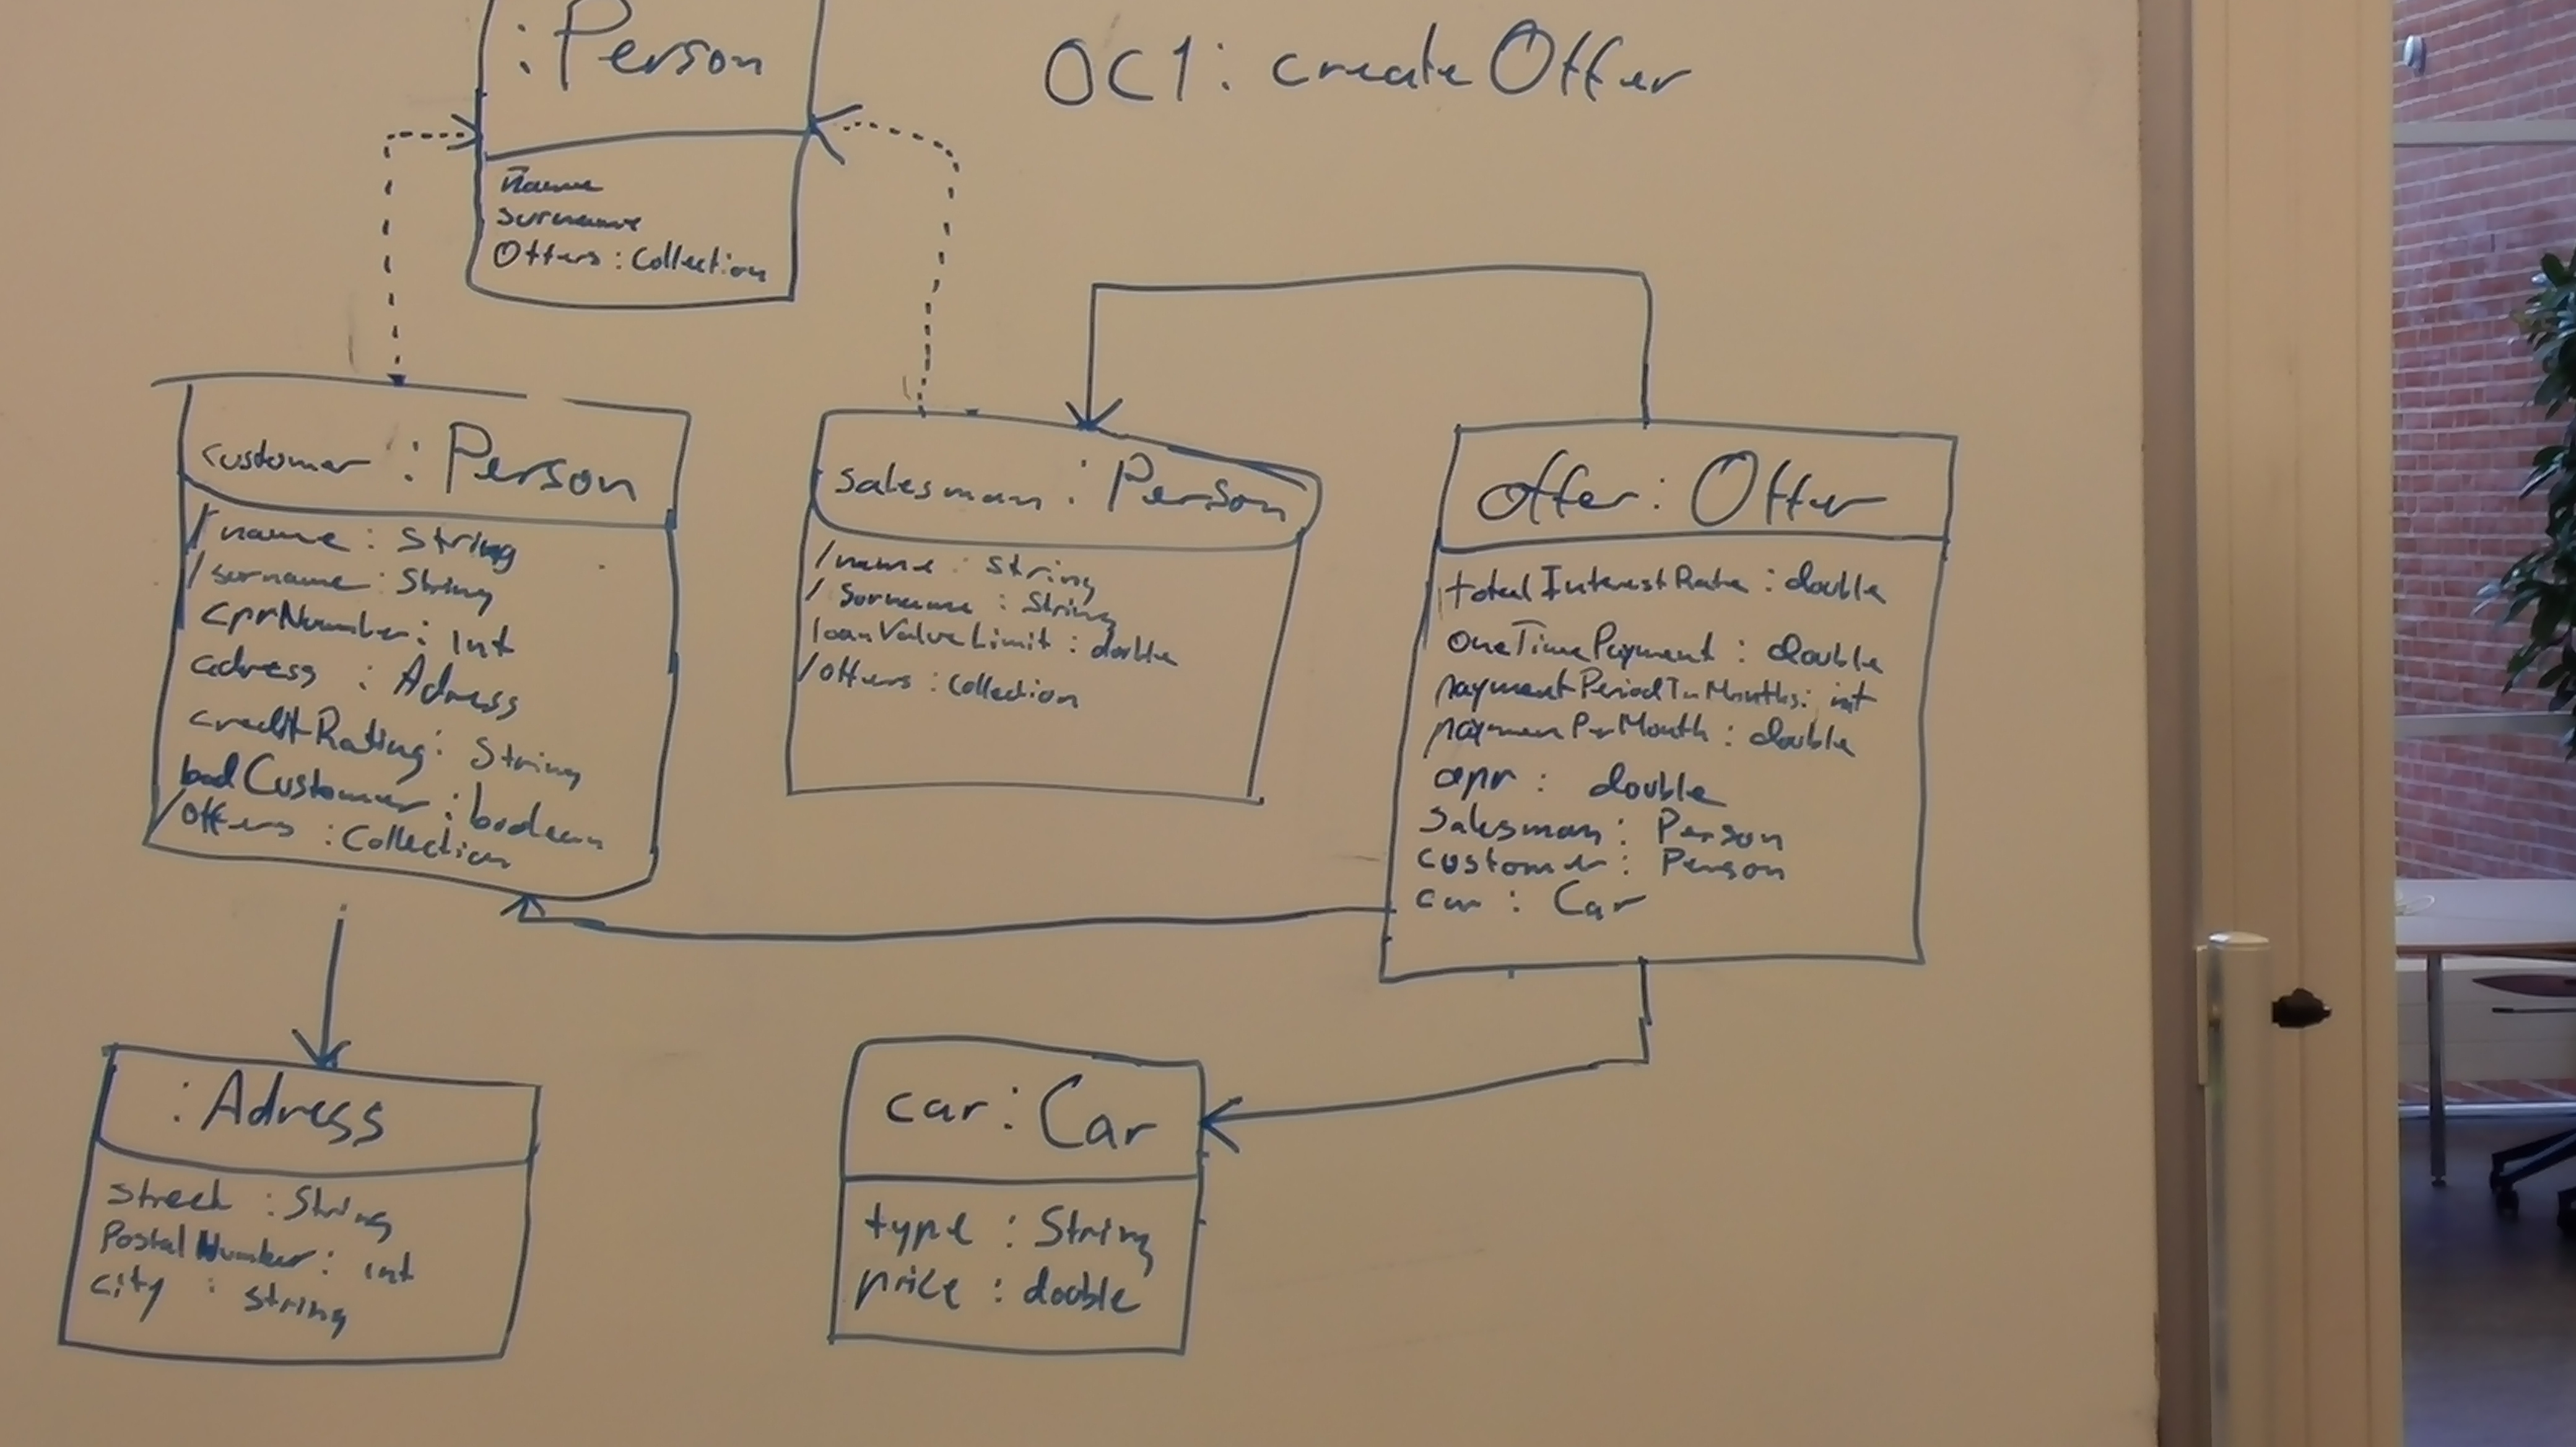 :Person
OC1: createOffer
name
surname
Offers : Collection
customer : Person
/name : String
/surname : String
cprNumber : int
adress : Adress
creditRating : String
badCustomer : boolean
/offers : Collection
salesman : Person
/name : String
/surname : String
loanValueLimit : double
/offers : Collection
offer : Offer
totalInterestRate : double
oneTimePayment : double
paymentPeriodInMonths : int
paymenPerMonth : double
apr : double
salesman : Person
customer : Person
car : Car
:Adress
street : String
PostalNumber : int
city : String
car : Car
type : String
price : double